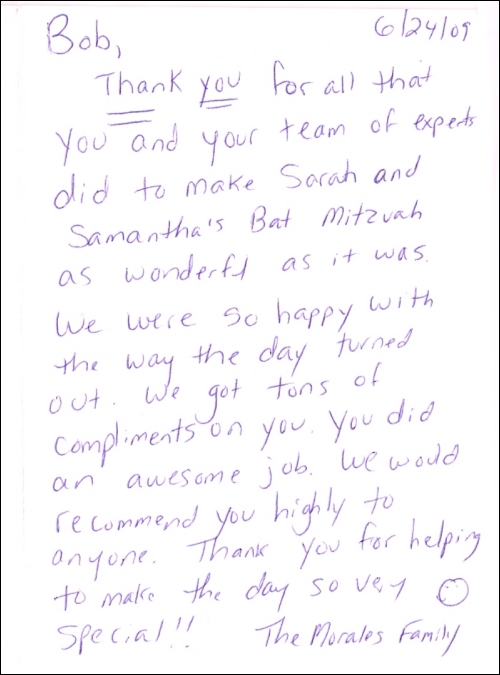 Bob, 6/24/09
Thank you for all that
you and your team of experts
did to make Sarah and
Samantha's Bat Mitzvah
as wonderfl as it was.
We were so happy with
the way the day turned
out. We got tons of
compliments on you. You did
an awesome job. We would
recommend you highly to
anyone. Thank you for helping
to make the day so very
special!! The Morales Family